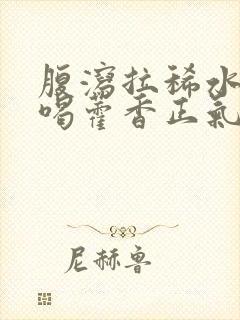 腹泻拉稀水
喝藿香正氣
尼赫鲁